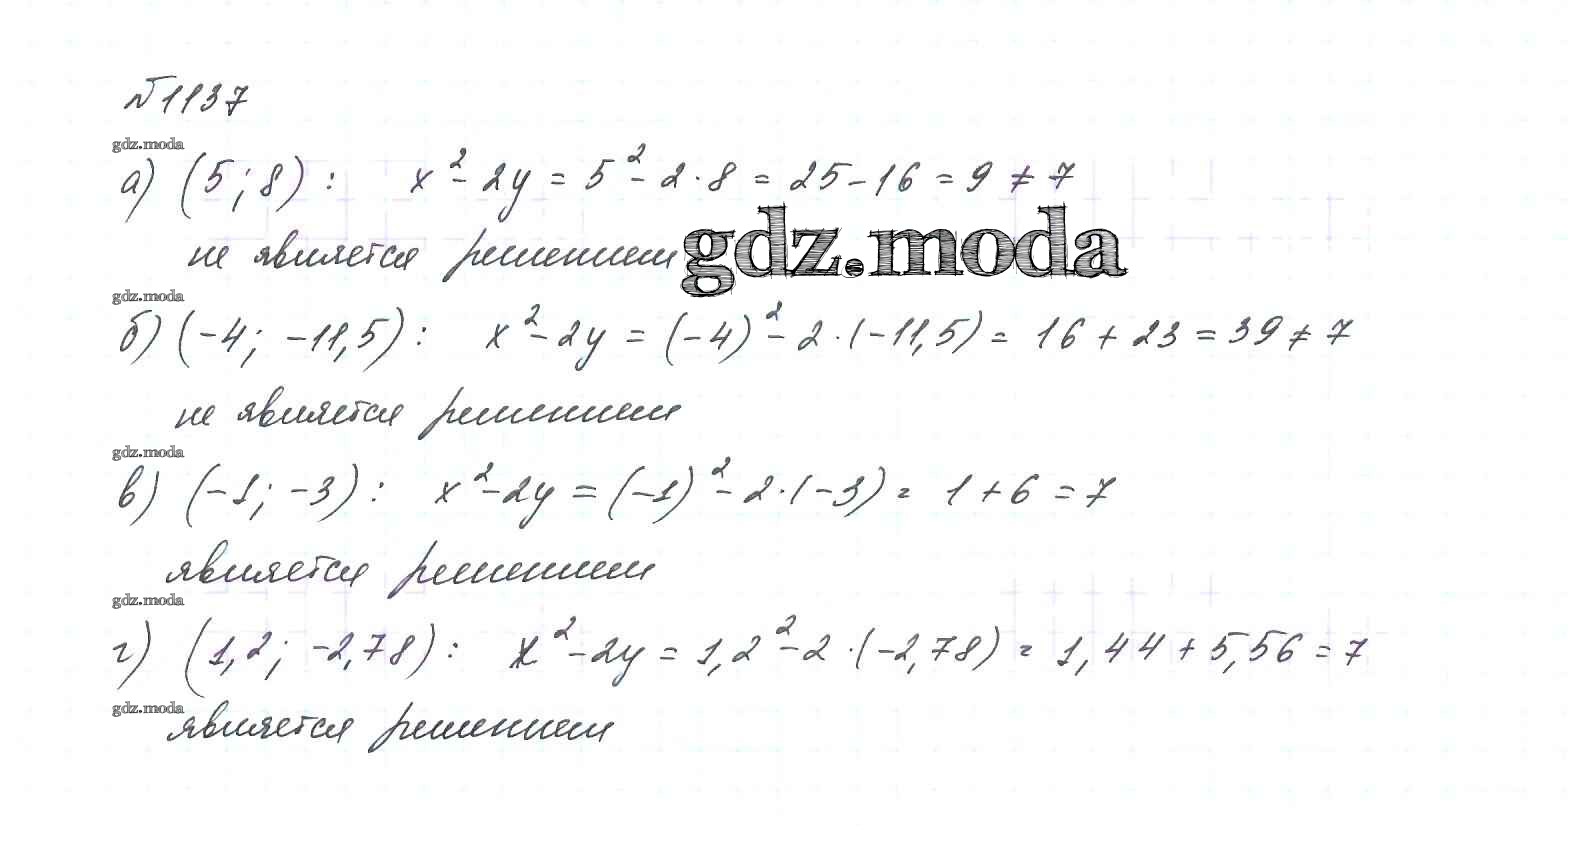 №1137
gdz.moda
а) (5; 8): x² - 2y = 5² - 2·8 = 25 - 16 = 9 ≠ 7
не является решением gdz.moda
gdz.moda
б) (-4; -11,5): x² - 2y = (-4)² - 2·(-11,5) = 16 + 23 = 39 ≠ 7
не является решением
gdz.moda
в) (-1; -3): x² - 2y = (-1)² - 2·(-3) = 1 + 6 = 7
является решением
gdz.moda
г) (1,2; -2,78): x² - 2y = 1,2² - 2·(-2,78) = 1,44 + 5,56 = 7
gdz.moda
является решением